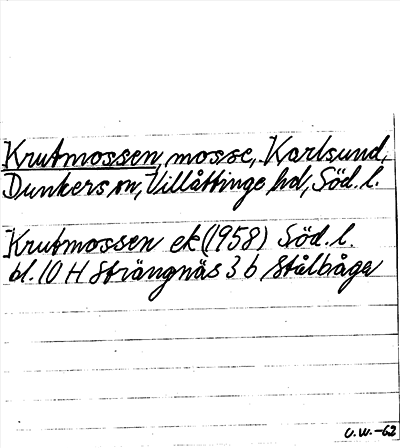 Krutmossen, mosse, Karlsund,
Dunkers sn, Villåttinge hd, Söd. l.
Krutmossen ek (1958) Söd. l.
bl. 10 H Strängnäs 3 b Stålbåga
O.W. -62